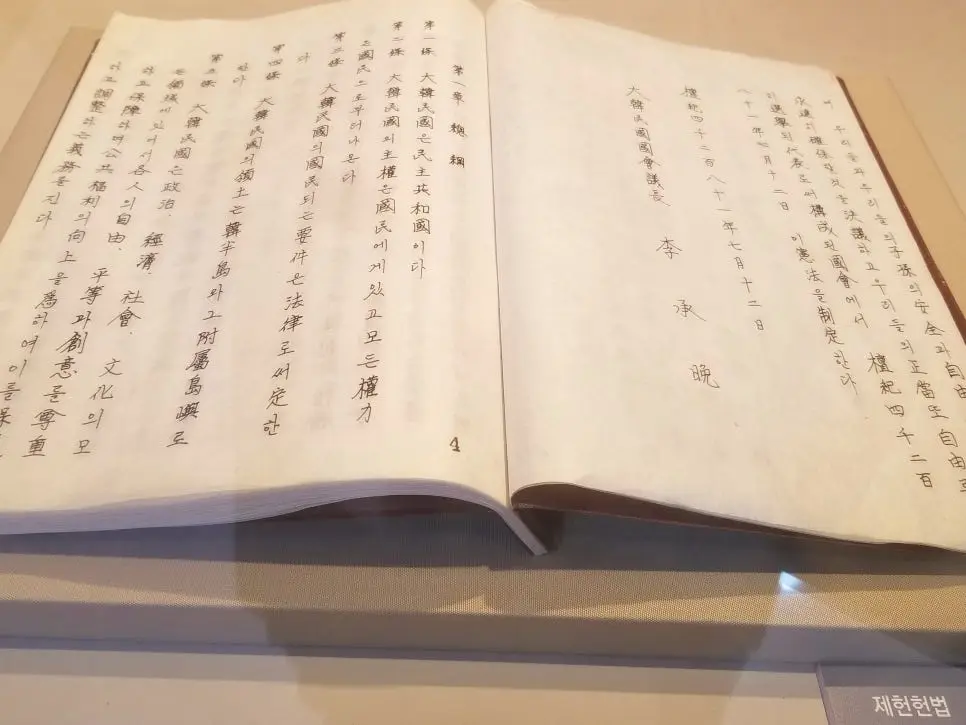 여 우리들과우리들의子孫의安全과自由
永遠히確保할것을決議하고우리들의正當또自由로
히選擧된代表로써構成된國會에서 檀紀四千二百
八十一年七月十二日 이憲法을制定한다
檀紀四千二百八十一年七月十二日
大韓民國國會議長 李承晩
第一章 總綱
第一條 大韓民國은民主共和國이다
第二條 大韓民國의主權은國民에게있고모든權力
은國民으로부터나온다
第三條 大韓民國의國民되는要件은法律로써定한
다
第四條 大韓民國의領土는韓半島와그附屬島嶼로
한다
第五條 大韓民國은政治, 經濟, 社會, 文化의모
든領域에있어서各人의自由, 平等과創意를尊重
하고保障하며公共福利의向上을爲하여이를保
하고調整하는義務를진다
4
제헌헌법